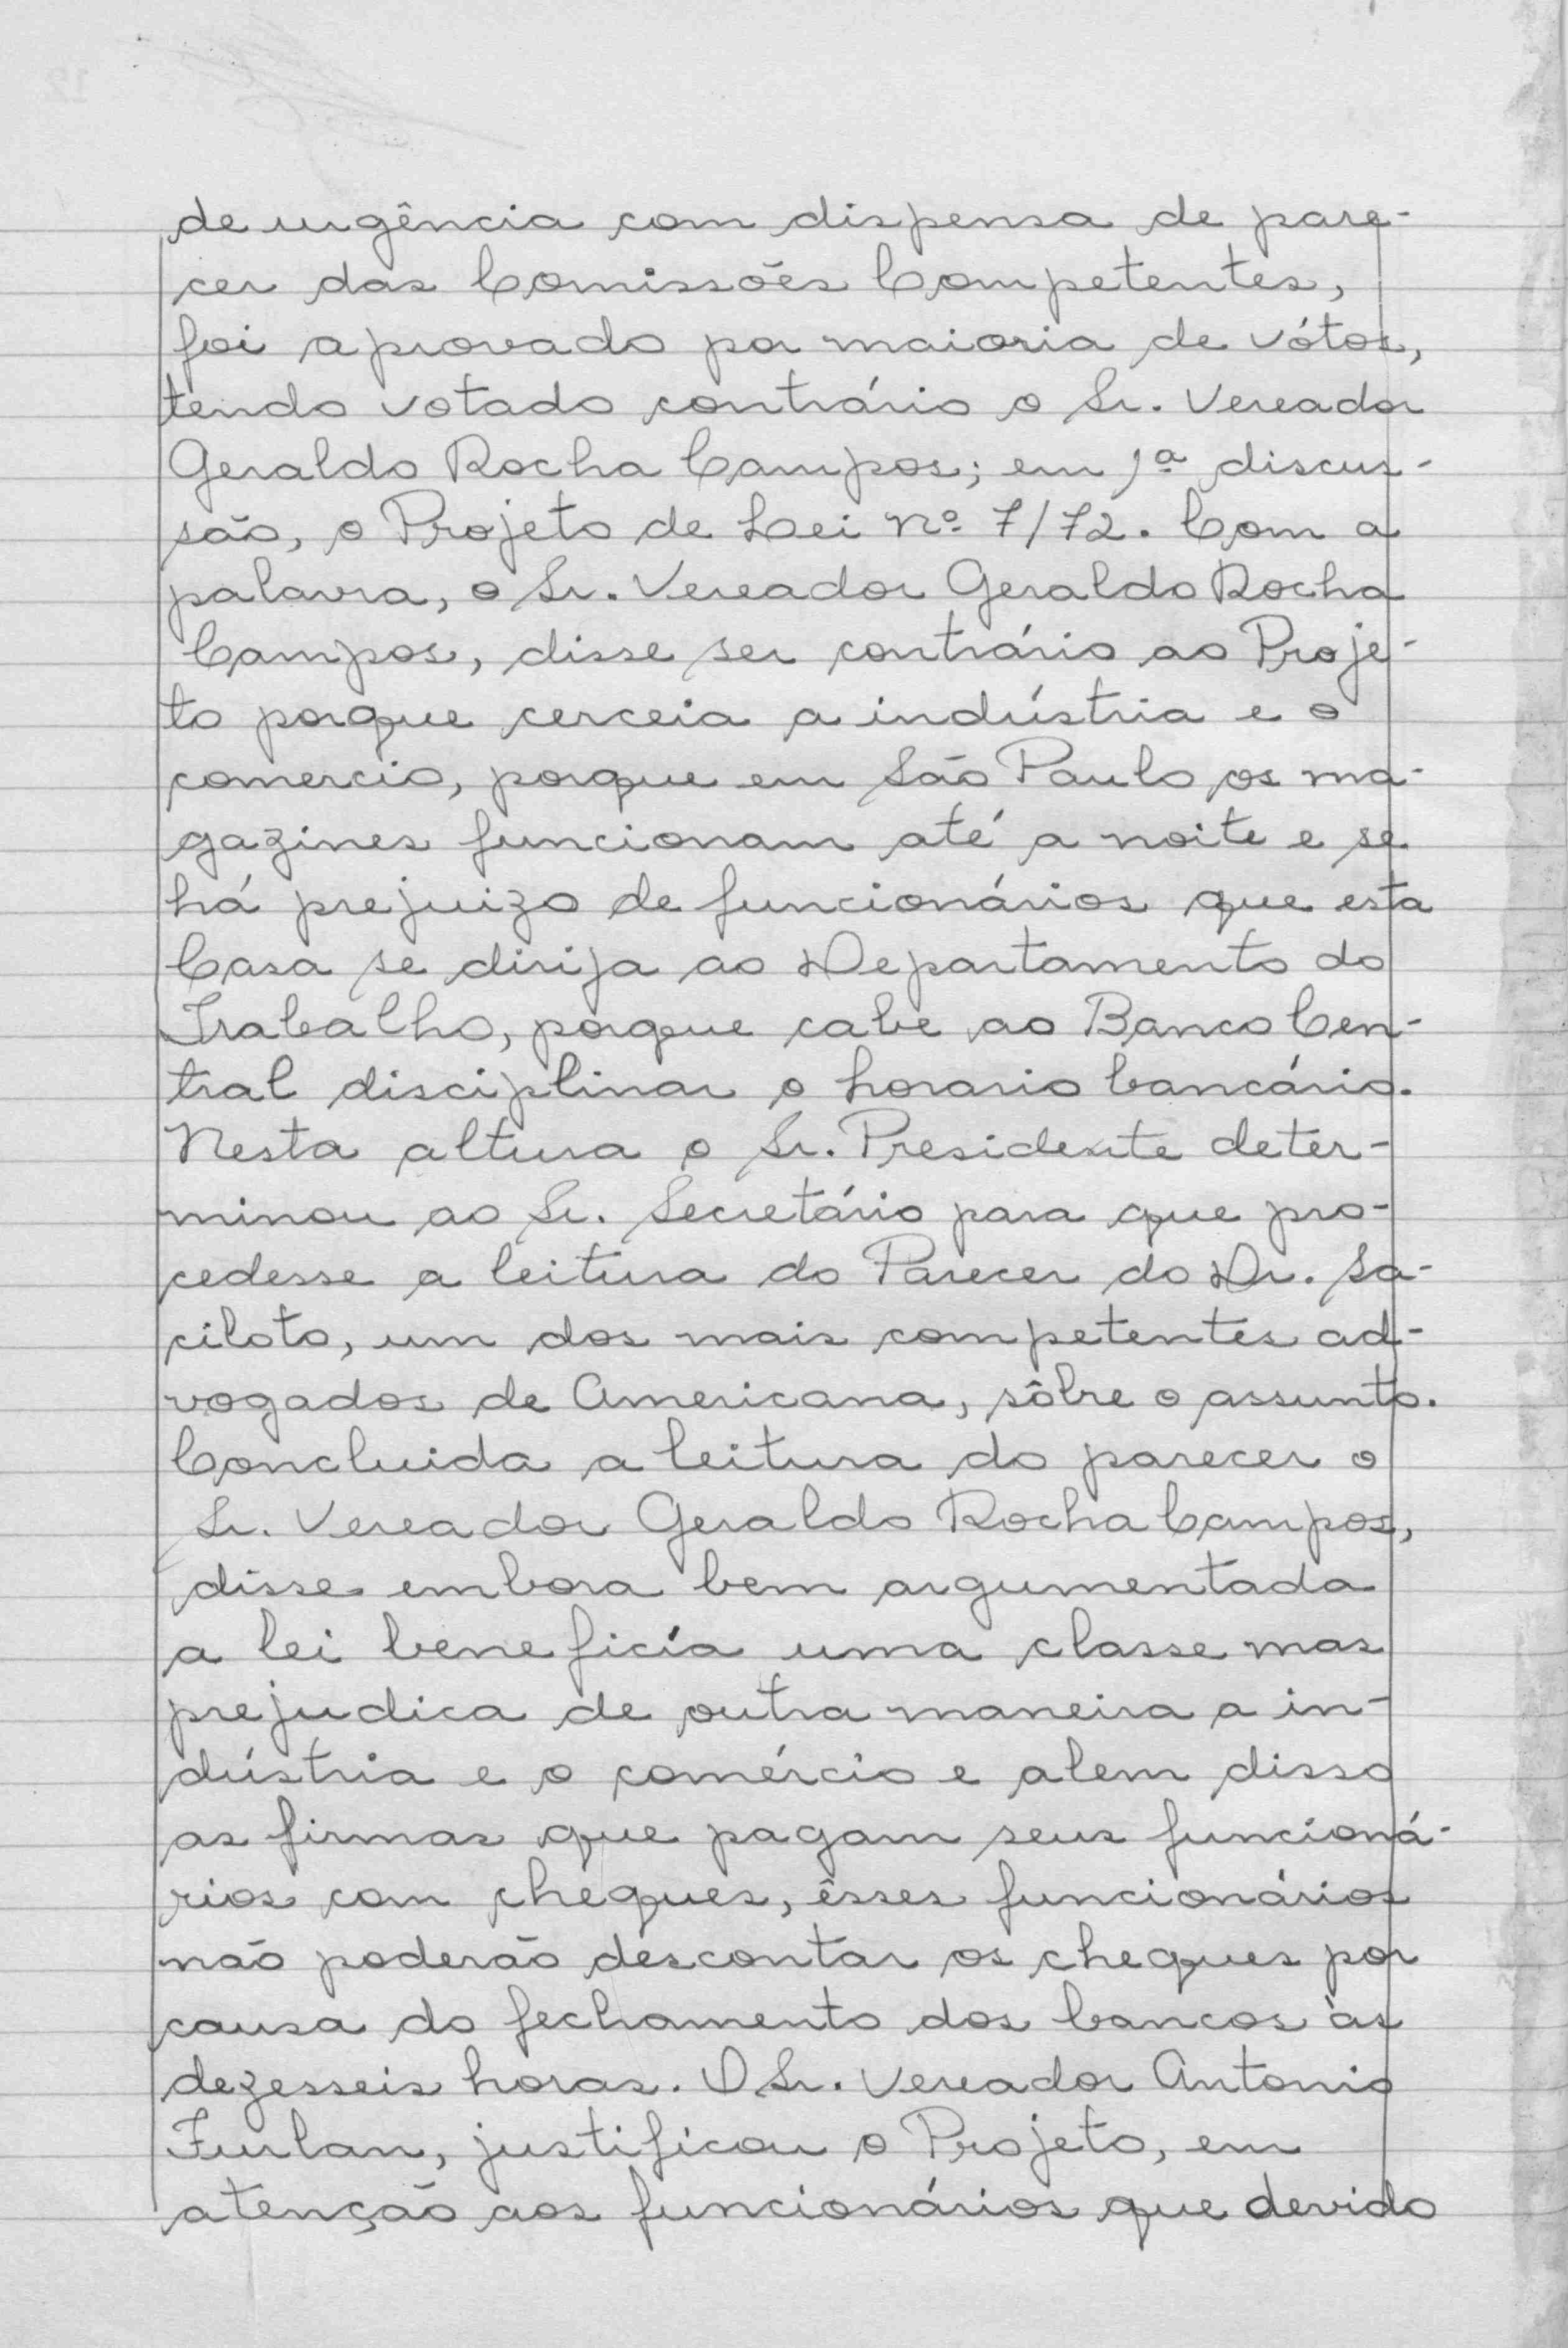 de urgência com dispensa de pare-
cer das Comissões Competentes,
foi aprovado por maioria de vótos,
tendo votado contrário o Sr. Vereador
Geraldo Rocha Campos; em 1ª discus-
são, o Projeto de Lei nº 7/72. Com a
palavra, o Sr. Vereador Geraldo Rocha
Campos, disse ser contrário ao Proje-
to porque cerceia a indústria e o
comercio, porque em São Paulo os ma-
gazines funcionam até a noite e se
há prejuizo de funcionários que esta
Casa se dirija ao Departamento do
Trabalho, porque cabe ao Banco Cen-
tral disciplinar o horario bancário.
Nesta altura o Sr. Presidente deter-
minou ao Sr. Secretário para que pro-
cedesse a leitura do Parecer do Dr. Sa-
ciloto, um dos mais competentes ad-
vogados de Americana, sôbre o assunto.
Concluida a leitura do parecer o
Sr. Vereador Geraldo Rocha Campos,
disse embora bem argumentada
a lei beneficía uma classe mas
prejudica de outra maneira a in-
dústria e o comércio e alem disso
as firmas que pagam seus funcioná-
rios com cheques, êsses funcionários
não poderão descontar os cheques por
causa do fechamento dos bancos às
dezesseis horas. O Sr. Vereador Antonio
Furlan, justificou o Projeto, em
atenção aos funcionários que devido